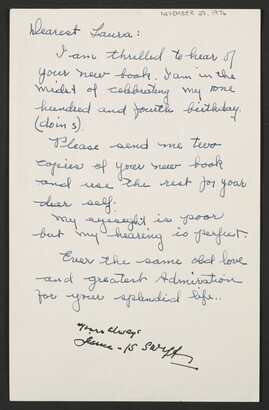 NOVEMBER 25, 1976
Dearest Laura:
I am thrilled to hear of
your new book. I am in the
midst of celebrating my one
hundred and fourth birthday
(doins).
Please send me two
copies of your new book
and use the rest for your
dear self.
My eyesight is poor
but my hearing is perfect.
Ever the same old love
and greatest Admiration
for your splendid life..
Yours always
Swift